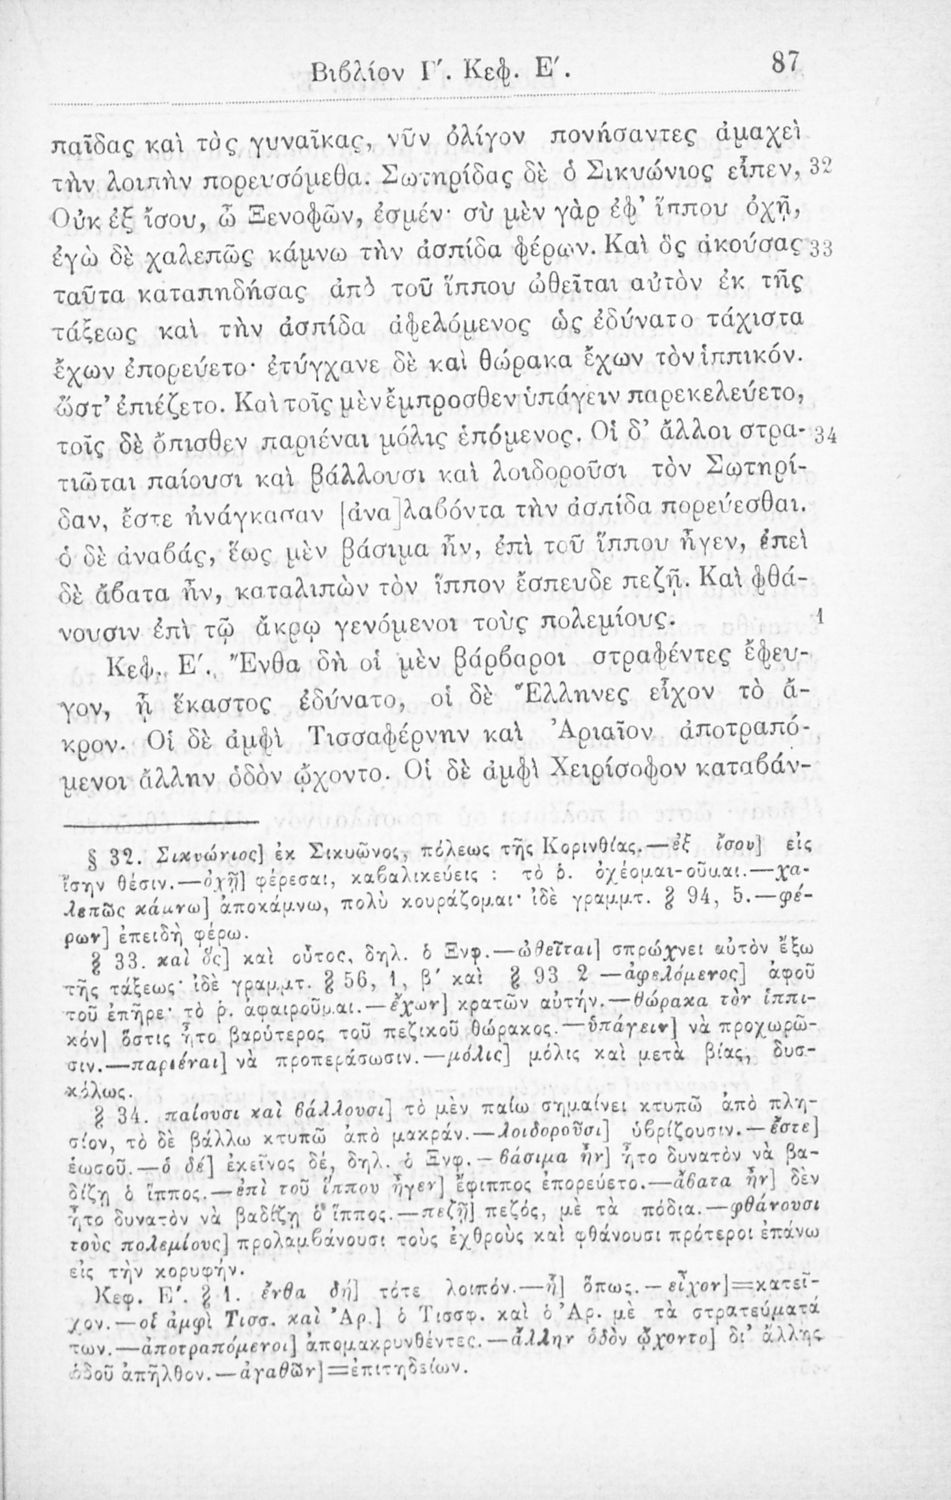 Βιβλίον Γ΄. Κεφ. Ε΄. 87
παῖδας καὶ τὰς γυναῖκας, νῦν ὀλίγον πονήσαντες ἀμαχεὶ
τὴν λοιπὴν πορευσόμεθα. Σωτηρίδας δὲ ὁ Σικυώνιος εἶπεν, 32
Οὐκ ἐξ ἴσου, ὦ Ξενοφῶν, ἐσμέν· σὺ μὲν γὰρ ἐφ' ἵππου ὀχῇ,
ἐγὼ δὲ χαλεπῶς κάμνω τὴν ἀσπίδα φέρων. Καὶ ὃς ἀκούσας 33
ταῦτα καταπηδήσας ἀπὸ τοῦ ἵππου ὠθεῖται αὐτὸν ἐκ τῆς
τάξεως καὶ τὴν ἀσπίδα ἀφελόμενος ὡς ἐδύνατο τάχιστα
ἔχων ἐπορεύετο· ἐτύγχανε δὲ καὶ θώρακα ἔχων τὸν ἱππικόν.
ὥστ' ἐπιέζετο. Καὶ τοῖς μὲν ἔμπροσθεν ὑπάγειν παρεκελεύετο,
τοῖς δὲ ὄπισθεν παριέναι μόλις ἑπόμενος. Οἱ δ' ἄλλοι στρα- 34
τιῶται παίουσι καὶ βάλλουσι καὶ λοιδοροῦσι τὸν Σωτηρί-
δαν, ἔστε ἠνάγκασαν [ἀνα]λαβόντα τὴν ἀσπίδα πορεύεσθαι.
ὁ δὲ ἀναβάς, ἕως μὲν βάσιμα ἦν, ἐπὶ τοῦ ἵππου ἦγεν, ἐπεὶ
δὲ ἄβατα ἦν, καταλιπὼν τὸν ἵππον ἔσπευδε πεζῇ. Καὶ φθά-
νουσιν ἐπὶ τῷ ἄκρῳ γενόμενοι τοὺς πολεμίους. 1
Κεφ. Ε΄. Ἔνθα δὴ οἱ μὲν βάρβαροι στραφέντες ἔφευ-
γον, ᾗ ἕκαστος ἐδύνατο, οἱ δὲ Ἕλληνες εἶχον τὸ ἄ-
κρον. Οἱ δὲ ἀμφὶ Τισσαφέρνην καὶ Ἀριαῖον ἀποτραπό-
μενοι ἄλλην ὁδὸν ᾤχοντο. Οἱ δὲ ἀμφὶ Χειρίσοφον καταβάν-
§ 32. Σικυώνιος] ἐκ Σικυῶνος, πόλεως τῆς Κορινθίας.—ἐξ ἴσου] εἰς
ἴσην θέσιν.—ὀχῇ] φέρεσαι, καβαλικεύεις : τὸ ῥ. ὀχέομαι-οῦμαι.—χα-
λεπῶς κάμνω] ἀποκάμνω, πολὺ κουράζομαι· ἰδὲ γραμμτ. § 94, 5.—φέ-
ρων] ἐπειδὴ φέρω.
§ 33. καὶ ὃς] καὶ οὗτος, δηλ. ὁ Ξνφ.—ὠθεῖται] σπρώχνει αὐτὸν ἔξω
τῆς τάξεως· ἰδὲ γραμμτ. § 56, 1, β΄ καὶ § 93 2 —ἀφελόμενος] ἀφοῦ
τοῦ ἐπῆρε· τὸ ῥ. ἀφαιροῦμαι.—ἔχων] κρατῶν αὐτήν.—θώρακα τὸν ἱππι-
κόν] ὅστις ἦτο βαρύτερος τοῦ πεζικοῦ θώρακος.—ὑπάγειν] νὰ προχωρῶ-
σιν.—παριέναι] νὰ προπεράσωσιν.—μόλις] μόλις καὶ μετὰ βίας, δυσ-
κόλως.
§ 34. παίουσι καὶ βάλλουσι] τὸ μὲν παίω σημαίνει κτυπῶ ἀπὸ πλη-
σίον, τὸ δὲ βάλλω κτυπῶ ἀπὸ μακράν.—λοιδοροῦσι] ὑβρίζουσιν.—ἔστε]
ἑωσοῦ.—ὁ δέ] ἐκεῖνος δέ, δηλ. ὁ Ξνφ.—βάσιμα ἦν] ἦτο δυνατὸν νὰ βα-
δίζῃ ὁ ἵππος.—ἐπὶ τοῦ ἵππου ἦγεν] ἔφιππος ἐπορεύετο.—ἄβατα ἦν] δὲν
ἦτο δυνατὸν νὰ βαδίζῃ ὁ ἵππος.—πεζῇ] πεζός, μὲ τὰ πόδια.—φθάνουσι
τοὺς πολεμίους] προλαμβάνουσι τοὺς ἐχθροὺς καὶ φθάνουσι πρότεροι ἐπάνω
εἰς τὴν κορυφήν.
Κεφ. Ε΄. § 1. ἔνθα δή] τότε λοιπόν.—ᾗ] ὅπως.—εἶχον]=κατεῖ-
χον.—οἱ ἀμφὶ Τισσ. καὶ Ἀρ.] ὁ Τισσφ. καὶ ὁ Ἀρ. μὲ τὰ στρατεύματά
των.—ἀποτραπόμενοι] ἀπομακρυνθέντες.—ἄλλην ὁδὸν ᾤχοντο] δι' ἄλλης
ὁδοῦ ἀπῆλθον.—ἀγαθῶν]=ἐπιτηδείων.